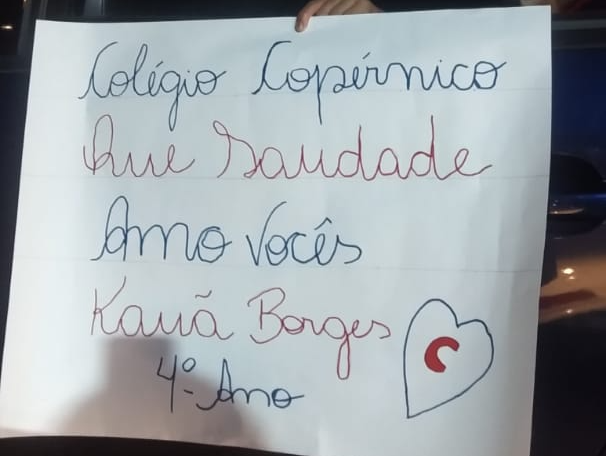 Colégio Copérnico
Que Saudade
Amo Vocês
Kauã Borges
C
4º Ano